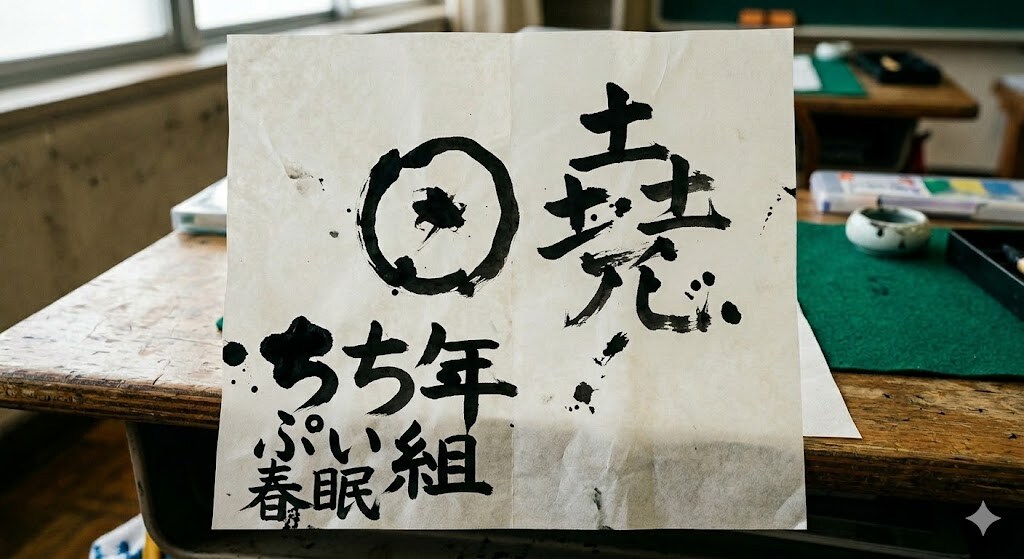 堯
年組
ちち
ぷい
春眠